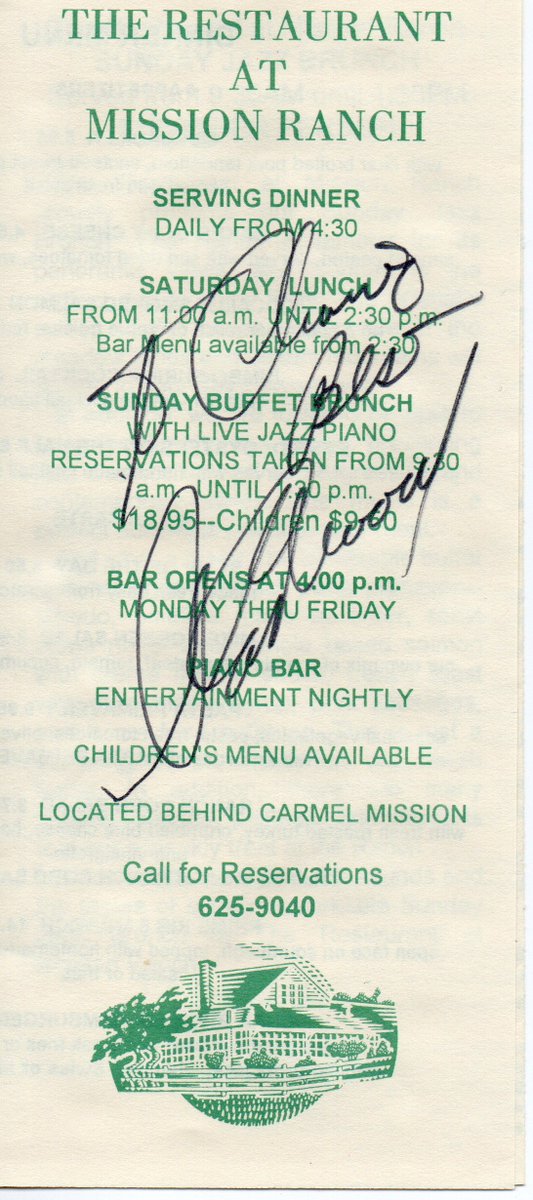 THE RESTAURANT
AT
MISSION RANCH
SERVING DINNER
DAILY FROM 4:30
SATURDAY LUNCH
FROM 11:00 a.m. UNTIL 2:30 p.m.
Bar Menu available from 2:30
SUNDAY BUFFET BRUNCH
WITH LIVE JAZZ PIANO
RESERVATIONS TAKEN FROM 9:30
a.m. UNTIL 1:30 p.m.
$18.95--Children $9.50
BAR OPENS AT 4:00 p.m.
MONDAY THRU FRIDAY
PIANO BAR
ENTERTAINMENT NIGHTLY
CHILDREN'S MENU AVAILABLE
LOCATED BEHIND CARMEL MISSION
Call for Reservations
625-9040
To
Best